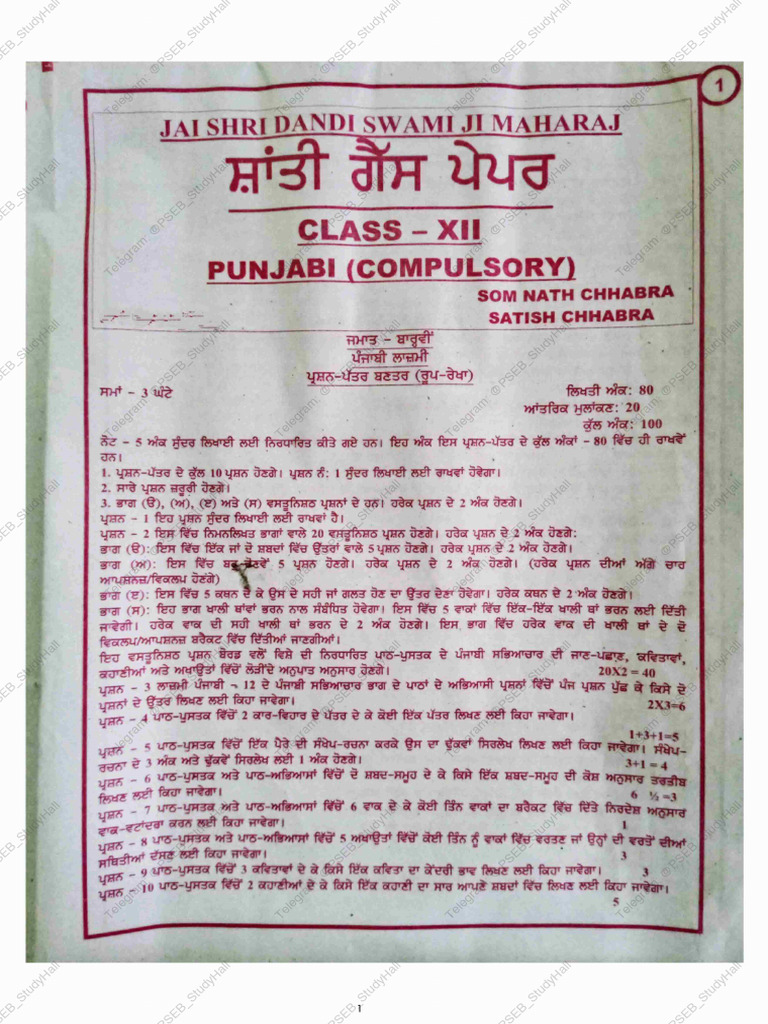 1
JAI SHRI DANDI SWAMI JI MAHARAJ
ਸ਼ਾਂਤੀ ਗੈੱਸ ਪੇਪਰ
CLASS – XII
PUNJABI (COMPULSORY)
SOM NATH CHHABRA
SATISH CHHABRA
ਜਮਾਤ - ਬਾਰ੍ਹਵੀਂ
ਪੰਜਾਬੀ ਲਾਜ਼ਮੀ
ਪ੍ਰਸ਼ਨ-ਪੱਤਰ ਬਣਤਰ (ਰੂਪ-ਰੇਖਾ)
ਸਮਾਂ - 3 ਘੰਟੇ ਲਿਖਤੀ ਅੰਕ: 80
ਆਂਤਰਿਕ ਮੁਲਾਂਕਣ: 20
ਕੁੱਲ ਅੰਕ: 100
ਨੋਟ - 5 ਅੰਕ ਸੁੰਦਰ ਲਿਖਾਈ ਲਈ ਨਿਰਧਾਰਿਤ ਕੀਤੇ ਗਏ ਹਨ। ਇਹ ਅੰਕ ਇਸ ਪ੍ਰਸ਼ਨ-ਪੱਤਰ ਦੇ ਕੁੱਲ ਅੰਕਾਂ - 80 ਵਿੱਚ ਹੀ ਰਾਖਵੇਂ
ਹਨ।
1. ਪ੍ਰਸ਼ਨ-ਪੱਤਰ ਦੇ ਕੁੱਲ 10 ਪ੍ਰਸ਼ਨ ਹੋਣਗੇ। ਪ੍ਰਸ਼ਨ ਨੰ: 1 ਸੁੰਦਰ ਲਿਖਾਈ ਲਈ ਰਾਖਵਾਂ ਹੋਵੇਗਾ।
2. ਸਾਰੇ ਪ੍ਰਸ਼ਨ ਜ਼ਰੂਰੀ ਹੋਣਗੇ।
3. ਭਾਗ (ੳ), (ਅ), (ੲ) ਅਤੇ (ਸ) ਵਸਤੂਨਿਸ਼ਠ ਪ੍ਰਸ਼ਨਾਂ ਦੇ ਹਨ। ਹਰੇਕ ਪ੍ਰਸ਼ਨ ਦੇ 2 ਅੰਕ ਹੋਣਗੇ।
ਪ੍ਰਸ਼ਨ - 1 ਇਹ ਪ੍ਰਸ਼ਨ ਸੁੰਦਰ ਲਿਖਾਈ ਲਈ ਰਾਖਵਾਂ ਹੈ।
ਪ੍ਰਸ਼ਨ - 2 ਇਸ ਵਿੱਚ ਨਿਮਨਲਿਖਤ ਭਾਗਾਂ ਵਾਲੇ 20 ਵਸਤੂਨਿਸ਼ਠ ਪ੍ਰਸ਼ਨ ਹੋਣਗੇ। ਹਰੇਕ ਪ੍ਰਸ਼ਨ ਦੇ 2 ਅੰਕ ਹੋਣਗੇ:
ਭਾਗ (ੳ): ਇਸ ਵਿੱਚ ਇੱਕ ਜਾਂ ਦੋ ਸ਼ਬਦਾਂ ਵਿੱਚ ਉੱਤਰਾਂ ਵਾਲੇ 5 ਪ੍ਰਸ਼ਨ ਹੋਣਗੇ। ਹਰੇਕ ਪ੍ਰਸ਼ਨ ਦੇ 2 ਅੰਕ ਹੋਣਗੇ।
ਭਾਗ (ਅ): ਇਸ ਵਿੱਚ 5 ਪ੍ਰਸ਼ਨ ਹੋਣਗੇ। ਹਰੇਕ ਪ੍ਰਸ਼ਨ ਦੇ 2 ਅੰਕ ਹੋਣਗੇ। (ਹਰੇਕ ਪ੍ਰਸ਼ਨ ਦੀਆਂ ਅੱਗੇ ਚਾਰ
ਆਪਸ਼ਨਜ਼/ਵਿਕਲਪ ਹੋਣਗੇ)
ਭਾਗ (ੲ): ਇਸ ਵਿੱਚ 5 ਕਥਨ ਦੇ ਕੇ ਉਸ ਦੇ ਸਹੀ ਜਾਂ ਗਲਤ ਹੋਣ ਦਾ ਉਤਰ ਦੇਣਾ ਹੋਵੇਗਾ। ਹਰੇਕ ਕਥਨ ਦੇ 2 ਅੰਕ ਹੋਣਗੇ।
ਭਾਗ (ਸ): ਇਹ ਭਾਗ ਖਾਲੀ ਥਾਂਵਾਂ ਭਰਨ ਨਾਲ ਸੰਬੰਧਿਤ ਹੋਵੇਗਾ। ਇਸ ਵਿੱਚ 5 ਵਾਕਾਂ ਵਿੱਚ ਇੱਕ-ਇੱਕ ਖਾਲੀ ਥਾਂ ਭਰਨ ਲਈ ਦਿੱਤੀ
ਜਾਵੇਗੀ। ਹਰੇਕ ਵਾਕ ਦੀ ਸਹੀ ਖਾਲੀ ਥਾਂ ਭਰਨ ਦੇ 2 ਅੰਕ ਹੋਣਗੇ। ਇਸ ਭਾਗ ਵਿੱਚ ਹਰੇਕ ਵਾਕ ਦੀ ਖਾਲੀ ਥਾਂ ਦੇ ਦੋ
ਵਿਕਲਪ/ਆਪਸ਼ਨਜ਼ ਬਰੈਕਟ ਵਿੱਚ ਦਿੱਤੀਆਂ ਜਾਣਗੀਆਂ।
ਇਹ ਵਸਤੂਨਿਸ਼ਠ ਪ੍ਰਸ਼ਨ ਬੋਰਡ ਵਲੋਂ ਵਿਸ਼ੇ ਦੀ ਨਿਰਧਾਰਿਤ ਪਾਠ-ਪੁਸਤਕ ਦੇ ਪੰਜਾਬੀ ਸਭਿਆਚਾਰ ਦੀ ਜਾਣ-ਪਛਾਣ, ਕਵਿਤਾਵਾਂ,
ਕਹਾਣੀਆਂ ਅਤੇ ਅਖਾਉਤਾਂ ਵਿੱਚੋਂ ਲੋੜੀਂਦੇ ਅਨੁਪਾਤ ਅਨੁਸਾਰ ਹੋਣਗੇ। 20X2 = 40
ਪ੍ਰਸ਼ਨ - 3 ਲਾਜ਼ਮੀ ਪੰਜਾਬੀ - 12 ਦੇ ਪੰਜਾਬੀ ਸਭਿਆਚਾਰ ਭਾਗ ਦੇ ਪਾਠਾਂ ਦੇ ਅਭਿਆਸੀ ਪ੍ਰਸ਼ਨਾਂ ਵਿੱਚੋਂ ਪੰਜ ਪ੍ਰਸ਼ਨ ਪੁੱਛ ਕੇ ਕਿਸੇ ਦੋ
ਪ੍ਰਸ਼ਨਾਂ ਦੇ ਉਤਰ ਲਿਖਣ ਲਈ ਕਿਹਾ ਜਾਵੇਗਾ। 2X3=6
ਪ੍ਰਸ਼ਨ - 4 ਪਾਠ-ਪੁਸਤਕ ਵਿੱਚੋਂ 2 ਕਾਰ-ਵਿਹਾਰ ਦੇ ਪੱਤਰ ਦੇ ਕੇ ਕੋਈ ਇੱਕ ਪੱਤਰ ਲਿਖਣ ਲਈ ਕਿਹਾ ਜਾਵੇਗਾ।
1+3+1=5
ਪ੍ਰਸ਼ਨ - 5 ਪਾਠ-ਪੁਸਤਕ ਵਿੱਚੋਂ ਇੱਕ ਪੈਰੇ ਦੀ ਸੰਖੇਪ-ਰਚਨਾ ਕਰਕੇ ਉਸ ਦਾ ਢੁੱਕਵਾਂ ਸਿਰਲੇਖ ਲਿਖਣ ਲਈ ਕਿਹਾ ਜਾਵੇਗਾ। ਸੰਖੇਪ-
ਰਚਨਾ ਦੇ 3 ਅੰਕ ਅਤੇ ਢੁੱਕਵੇਂ ਸਿਰਲੇਖ ਲਈ 1 ਅੰਕ ਹੋਣਗੇ। 3+1 = 4
ਪ੍ਰਸ਼ਨ - 6 ਪਾਠ-ਪੁਸਤਕ ਅਤੇ ਪਾਠ-ਅਭਿਆਸਾਂ ਵਿੱਚੋਂ ਦੋ ਸ਼ਬਦ-ਸਮੂਹ ਦੇ ਕੇ ਕਿਸੇ ਇੱਕ ਸ਼ਬਦ-ਸਮੂਹ ਦੀ ਕੋਸ਼ ਅਨੁਸਾਰ ਤਰਤੀਬ
ਲਿਖਣ ਲਈ ਕਿਹਾ ਜਾਵੇਗਾ। 6 ½ =3
ਪ੍ਰਸ਼ਨ - 7 ਪਾਠ-ਪੁਸਤਕ ਅਤੇ ਪਾਠ-ਅਭਿਆਸਾਂ ਵਿੱਚੋਂ 6 ਵਾਕ ਦੇ ਕੇ ਕੋਈ ਤਿੰਨ ਵਾਕਾਂ ਦਾ ਬਰੈਕਟ ਵਿੱਚ ਦਿੱਤੇ ਨਿਰਦੇਸ਼ ਅਨੁਸਾਰ
ਵਾਕ-ਵਟਾਂਦਰਾ ਕਰਨ ਲਈ ਕਿਹਾ ਜਾਵੇਗਾ। 1
ਪ੍ਰਸ਼ਨ - 8 ਪਾਠ-ਪੁਸਤਕ ਅਤੇ ਪਾਠ-ਅਭਿਆਸਾਂ ਵਿੱਚੋਂ 5 ਅਖਾਉਤਾਂ ਵਿੱਚੋਂ ਕੋਈ ਤਿੰਨ ਨੂੰ ਵਾਕਾਂ ਵਿੱਚ ਵਰਤਣ ਜਾਂ ਉਨ੍ਹਾਂ ਦੀ ਵਰਤੋਂ ਦੀਆਂ
ਸਥਿਤੀਆਂ ਦੱਸਣ ਲਈ ਕਿਹਾ ਜਾਵੇਗਾ। 3
ਪ੍ਰਸ਼ਨ - 9 ਪਾਠ-ਪੁਸਤਕ ਵਿੱਚੋਂ 3 ਕਵਿਤਾਵਾਂ ਦੇ ਕੇ ਕਿਸੇ ਇੱਕ ਕਵਿਤਾ ਦਾ ਕੇਂਦਰੀ ਭਾਵ ਲਿਖਣ ਲਈ ਕਿਹਾ ਜਾਵੇਗਾ। 3
ਪ੍ਰਸ਼ਨ - 10 ਪਾਠ-ਪੁਸਤਕ ਵਿੱਚੋਂ 2 ਕਹਾਣੀਆਂ ਦੇ ਕੇ ਕਿਸੇ ਇੱਕ ਕਹਾਣੀ ਦਾ ਸਾਰ ਆਪਣੇ ਸ਼ਬਦਾਂ ਵਿੱਚ ਲਿਖਣ ਲਈ ਕਿਹਾ ਜਾਵੇਗਾ।
5
1
Telegram: @PSEB_StudyHall